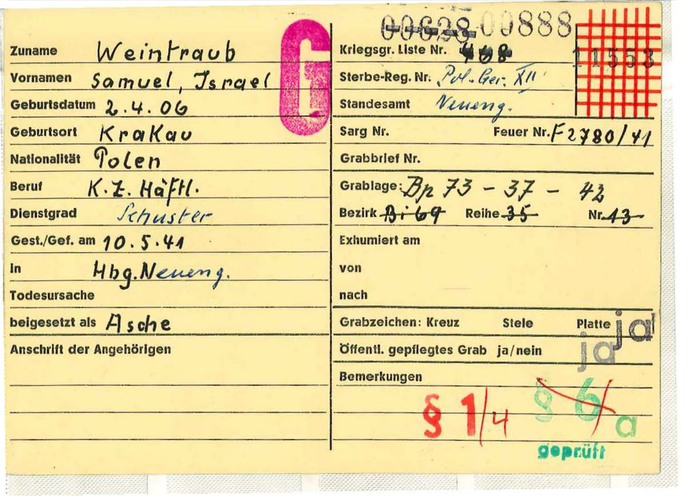 Zuname Weintraub
Vornamen Samuel, Israel
Geburtsdatum 2.4.06
Geburtsort Krakau
Nationalität Polen
Beruf K.Z. Häftl.
Dienstgrad Schuster
Gest./Gef. am 10.5.41
in Hbg. Neueng.
Todesursache
beigesetzt als Asche
Anschrift der Angehörigen
G
00628 00888
Kriegsgr. Liste Nr. 448
11553
Sterbe-Reg. Nr. Pol. Ger. XII
Standesamt Neueng.
Sarg Nr. Feuer Nr. F 2780/41
Grabbrief Nr.
Grablage: Bp 73 - 37 - 42
Bezirk Bi 69 Reihe 35 Nr. 13
Exhumiert am
von
nach
Grabzeichen: Kreuz Stele Platte ja
Öffentl. gepflegtes Grab ja/nein ja
Bemerkungen
§ 1/4 § 6 a
geprüft